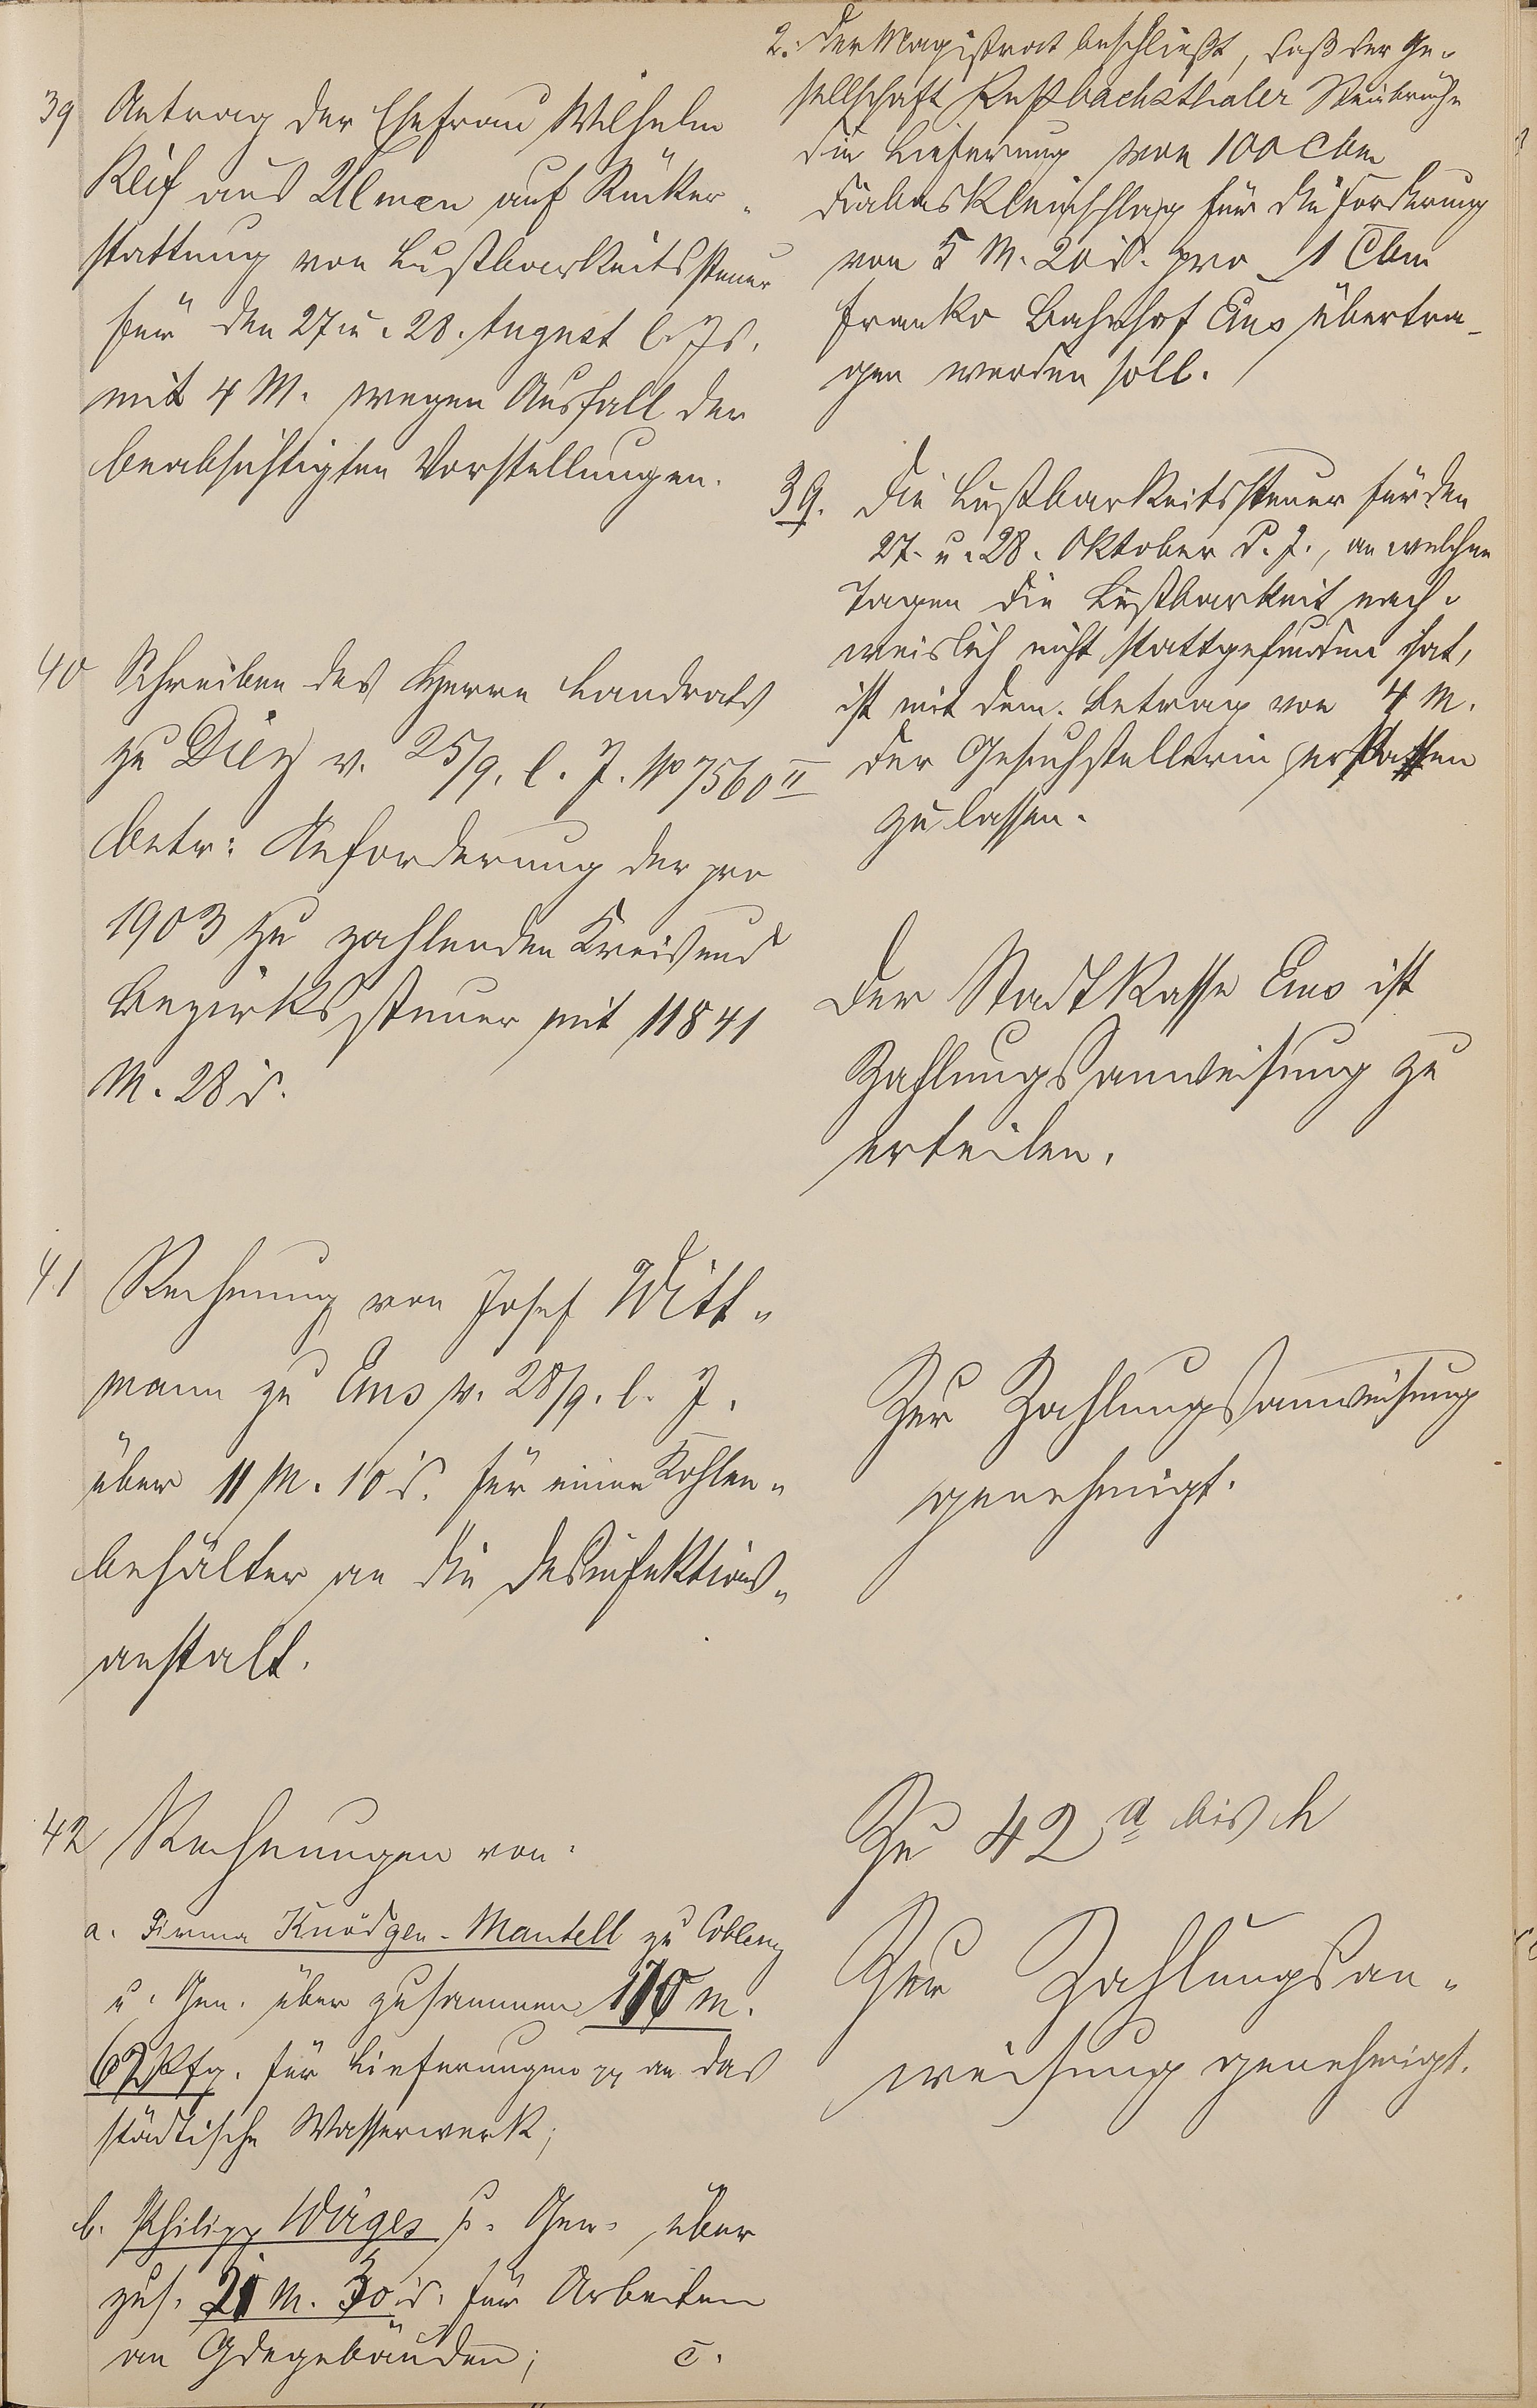 39 Antrag der Ehefrau Wilhelm
Reif aus Ulmen auf Rücker-
stattung von Lustbarkeitssteuer
für den 27 u. 28. August l. Js.
mit 4 M. wegen Ausfall der
beabsichtigten Vorstellungen.
40 Schreiben des Herrn Landrats
zu Diez v. 25/9. l. J. No 7560 II
betr: Anforderung der pro
1903 zu zahlenden Kreis und
Bezirkssteuer mit 11841
M. 28 d.
41 Rechnung von Josef Witt-
mann zu Ems v. 28/9. l. J.
über 11 M. 10 d. für einen Kohlen-
behälter an die Desinfektions-
anstalt.
42 Rechnungen von:
a. Firma Knödgen-Mantell zu Coblenz
u. Gen. über zusammen 170 M.
62 Pfg. für Lieferungen pp an das
städtische Wasserwerk;
b. Philipp Wirges u. Gen. über
zus. 21 M. 30 d. für Arbeiten
an Gdegebäuden; c.
2. Der Magistrat beschließt, daß der Ge-
sellschaft Rußbachsthaler Steinbrüche
die Lieferung von 100 cbm
Diabaskleinschlag für die Forderung
von 5 M. 20 d. pro 1 Cbm
franko Bahnhof Ems übertra-
gen werden soll.
39. Die Lustbarkeitssteuer für den
27. u. 28. Oktober d. J., an welchen
Tagen die Lustbarkeit nach-
weislich nicht stattgefunden hat,
ist mit dem Betrag von 4 M.
der Gesuchstellerin erstatten
zu lassen.
Der Stadtkasse Ems ist
Zahlungsanweisung zu
erteilen.
Zur Zahlungsanweisung
genehmigt.
Zu 42 a bis h
Zur Zahlungsan-
weisung genehmigt.